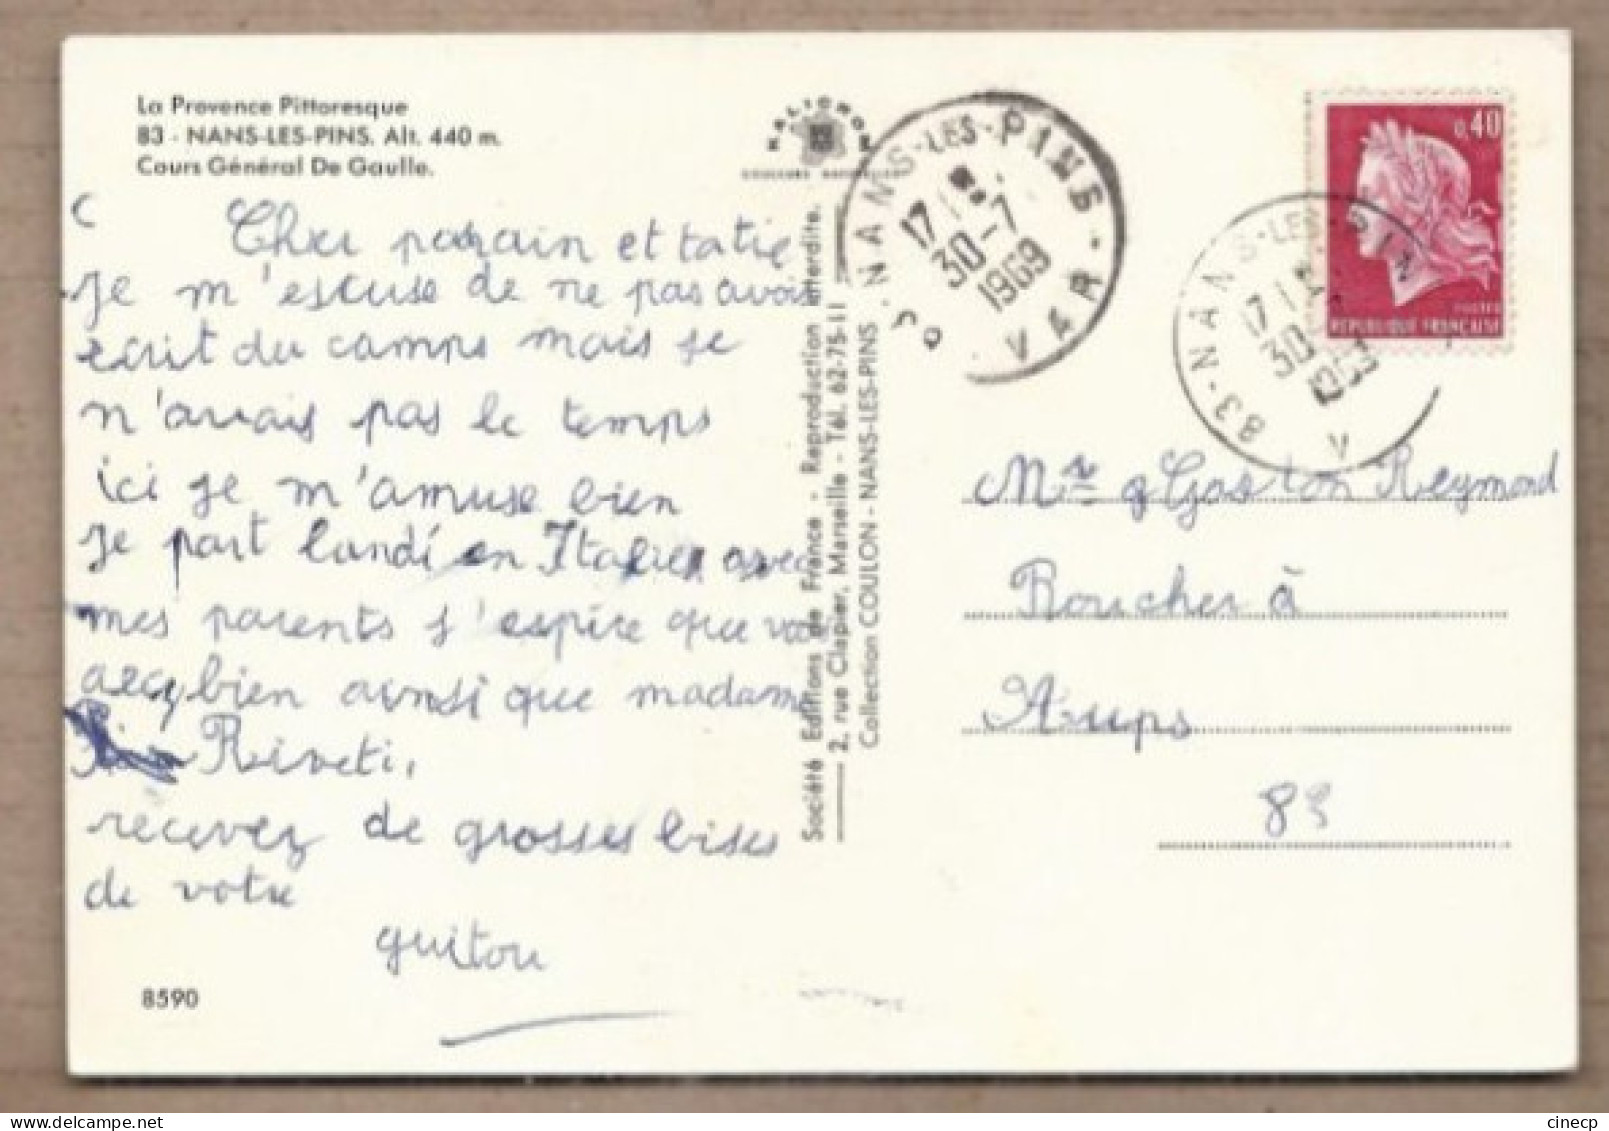 La Provence Pittoresque
83 - NANS-LES-PINS. Alt. 440 m.
Cours Général De Gaulle.
Cher parain et tatie
Je m'escuse de ne pas avoir
ecrit du camps mais je
n'avais pas le temps
ici je m'amuse bien
Je part lundi en Italie avec
mes parents j'espire que vous
avez bien ainsi que madame
Riveti,
recevez de grosses bises
de votre
guitou
8590
KALICROM
COULEURS NATURELLES
Société Editions de France - Reproduction interdite.
2, rue Clapier, Marseille - Tél. 62-75-11
Collection COULON - NANS-LES-PINS
83 - NANS-LES-PINS
17 H
30-7
1969
VAR
83-NANS-LES-PINS
17 H
30
V
0,40
POSTES
REPUBLIQUE FRANÇAISE
Mr Gaston Reymond
Boucher à
Aups
83
cinecp